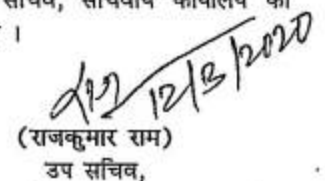 सचिव, सचिवीय कार्यालय को
।
12/3/2020
(राजकुमार राम)
उप सचिव,